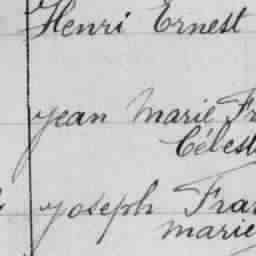 Henri Ernest
Jean Marie Fr
Célest
Joseph Fra
Marie